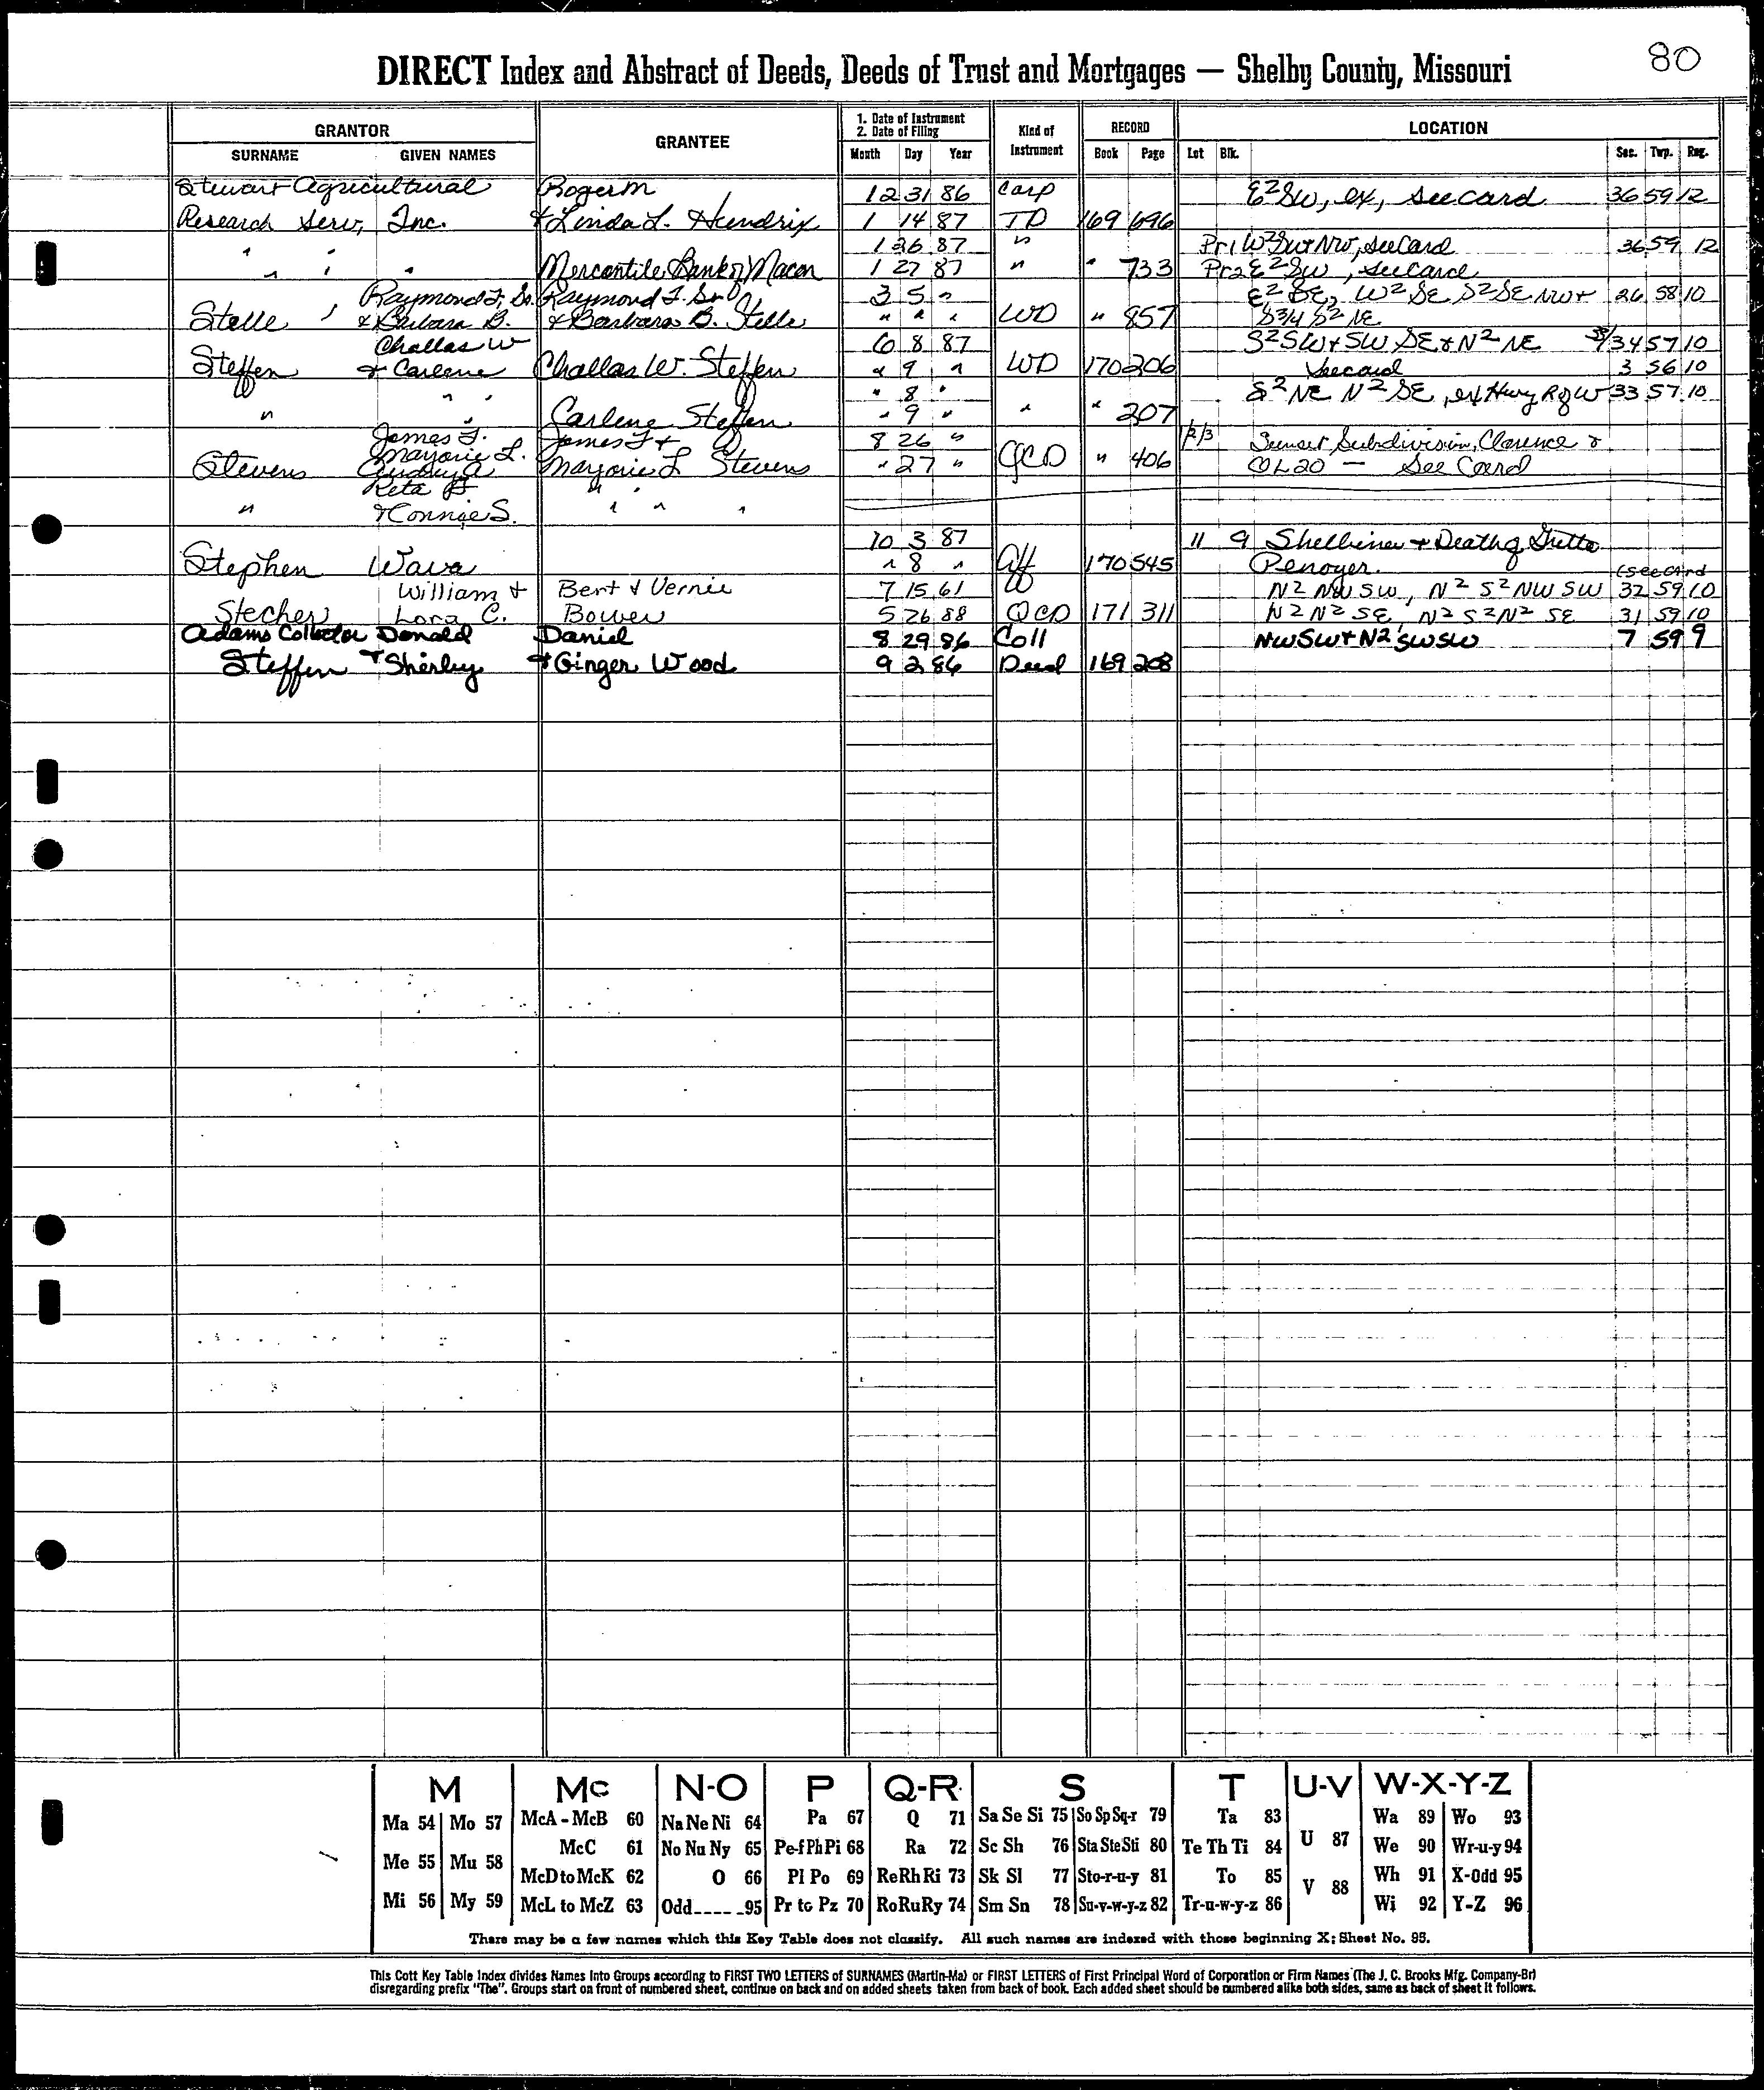 80
DIRECT Index and Abstract of Deeds, Deeds of Trust and Mortgages — Shelby County, Missouri
GRANTOR GRANTEE 1. Date of Instrument 2. Date of Filing Kind of Instrument RECORD LOCATION
SURNAME GIVEN NAMES Month Day Year Book Page Lot Blk. Sec. Twp. Rng.
Stewart Agricultural Roger M 12 31 86 Corp E2 SW, ex, see card 36 59 12
Research Serv, Inc. & Linda L. Hendrix 1 14 87 TD 169 696
" " 1 26 87 " Pr 1 W2 SW & NW, see card 36 59 12
" " " Mercantile Bank of Macon 1 27 87 " " 733 Pr 2 E2 SW, see card
Raymond F. Sr. Raymond F. Sr. 3 5 " E2 SE, W2 SE S2 SE NW & 26 58 10
Stelle & Barbara B. & Barbara B. Stelle " " " WD " 857 S3/4 S2 NE
Challas W 6 8 87 S2 SW & SW SE & N2 NE 34 57 10
Steffen & Carlene Challas W. Steffen " 9 " WD 170 206 see card 3 56 10
" " " 8 " S2 NE N2 SE, ex Hwy R of W 33 57 10
" " Carlene Steffen " 9 " " " 207
James F. James F & 8 26 " Sunset Subdivision, Clarence &
Marjorie L.
Stevens Audry A Marjorie L Stevens " 27 " QCD " 406 OL 20 — See Card
Reta " "
" & Connie S. " " "
10 3 87 11 9 Shelbina & Death of
Stephen Wava " 8 " Aff 170 545 Penoyer. (see card
William & Bert & Vernie 7 15 61 N2 NW SW, N2 S2 NW SW 32 59 10
Stecher Lora C. Bower 5 26 88 QCD 171 311 N2 N2 SE, N2 S2 N2 SE 31 59 10
Adams Collector Donald Daniel 8 29 86 Coll NW SW & N2 SW SW 7 59 9
Steffen & Shirley & Ginger Wood 9 2 86 Deed 169 208
M Mc N-O P Q-R S T U-V W-X-Y-Z
Ma 54 Mo 57 McA - McB 60 Na Ne Ni 64 Pa 67 Q 71 Sa Se Si 75 So Sp Sq-r 79 Ta 83 Wa 89 Wo 93
McC 61 No Nu Ny 65 Pe-f Ph Pi 68 Ra 72 Sc Sh 76 Sta Ste Sti 80 Te Th Ti 84 U 87 We 90 Wr-u-y 94
Me 55 Mu 58 McD to McK 62 O 66 Pl Po 69 Re Rh Ri 73 Sk Sl 77 Sto-r-u-y 81 To 85 V 88 Wh 91 X-Odd 95
Mi 56 My 59 McL to McZ 63 Odd---- -95 Pr to Pz 70 Ro Ru Ry 74 Sm Sn 78 Su-v-w-y-z 82 Tr-u-w-y-z 86 Wi 92 Y-Z 96
There may be a few names which this Key Table does not classify. All such names are indexed with those beginning X; Sheet No. 95.
This Cott Key Table Index divides Names Into Groups according to FIRST TWO LETTERS of SURNAMES (Martin-Ma) or FIRST LETTERS of First Principal Word of Corporation or Firm Names (The J. C. Brooks Mfg. Company-Br)
disregarding prefix "The". Groups start on front of numbered sheet, continue on back and on added sheets taken from back of book. Each added sheet should be numbered alike both sides, same as back of sheet it follows.